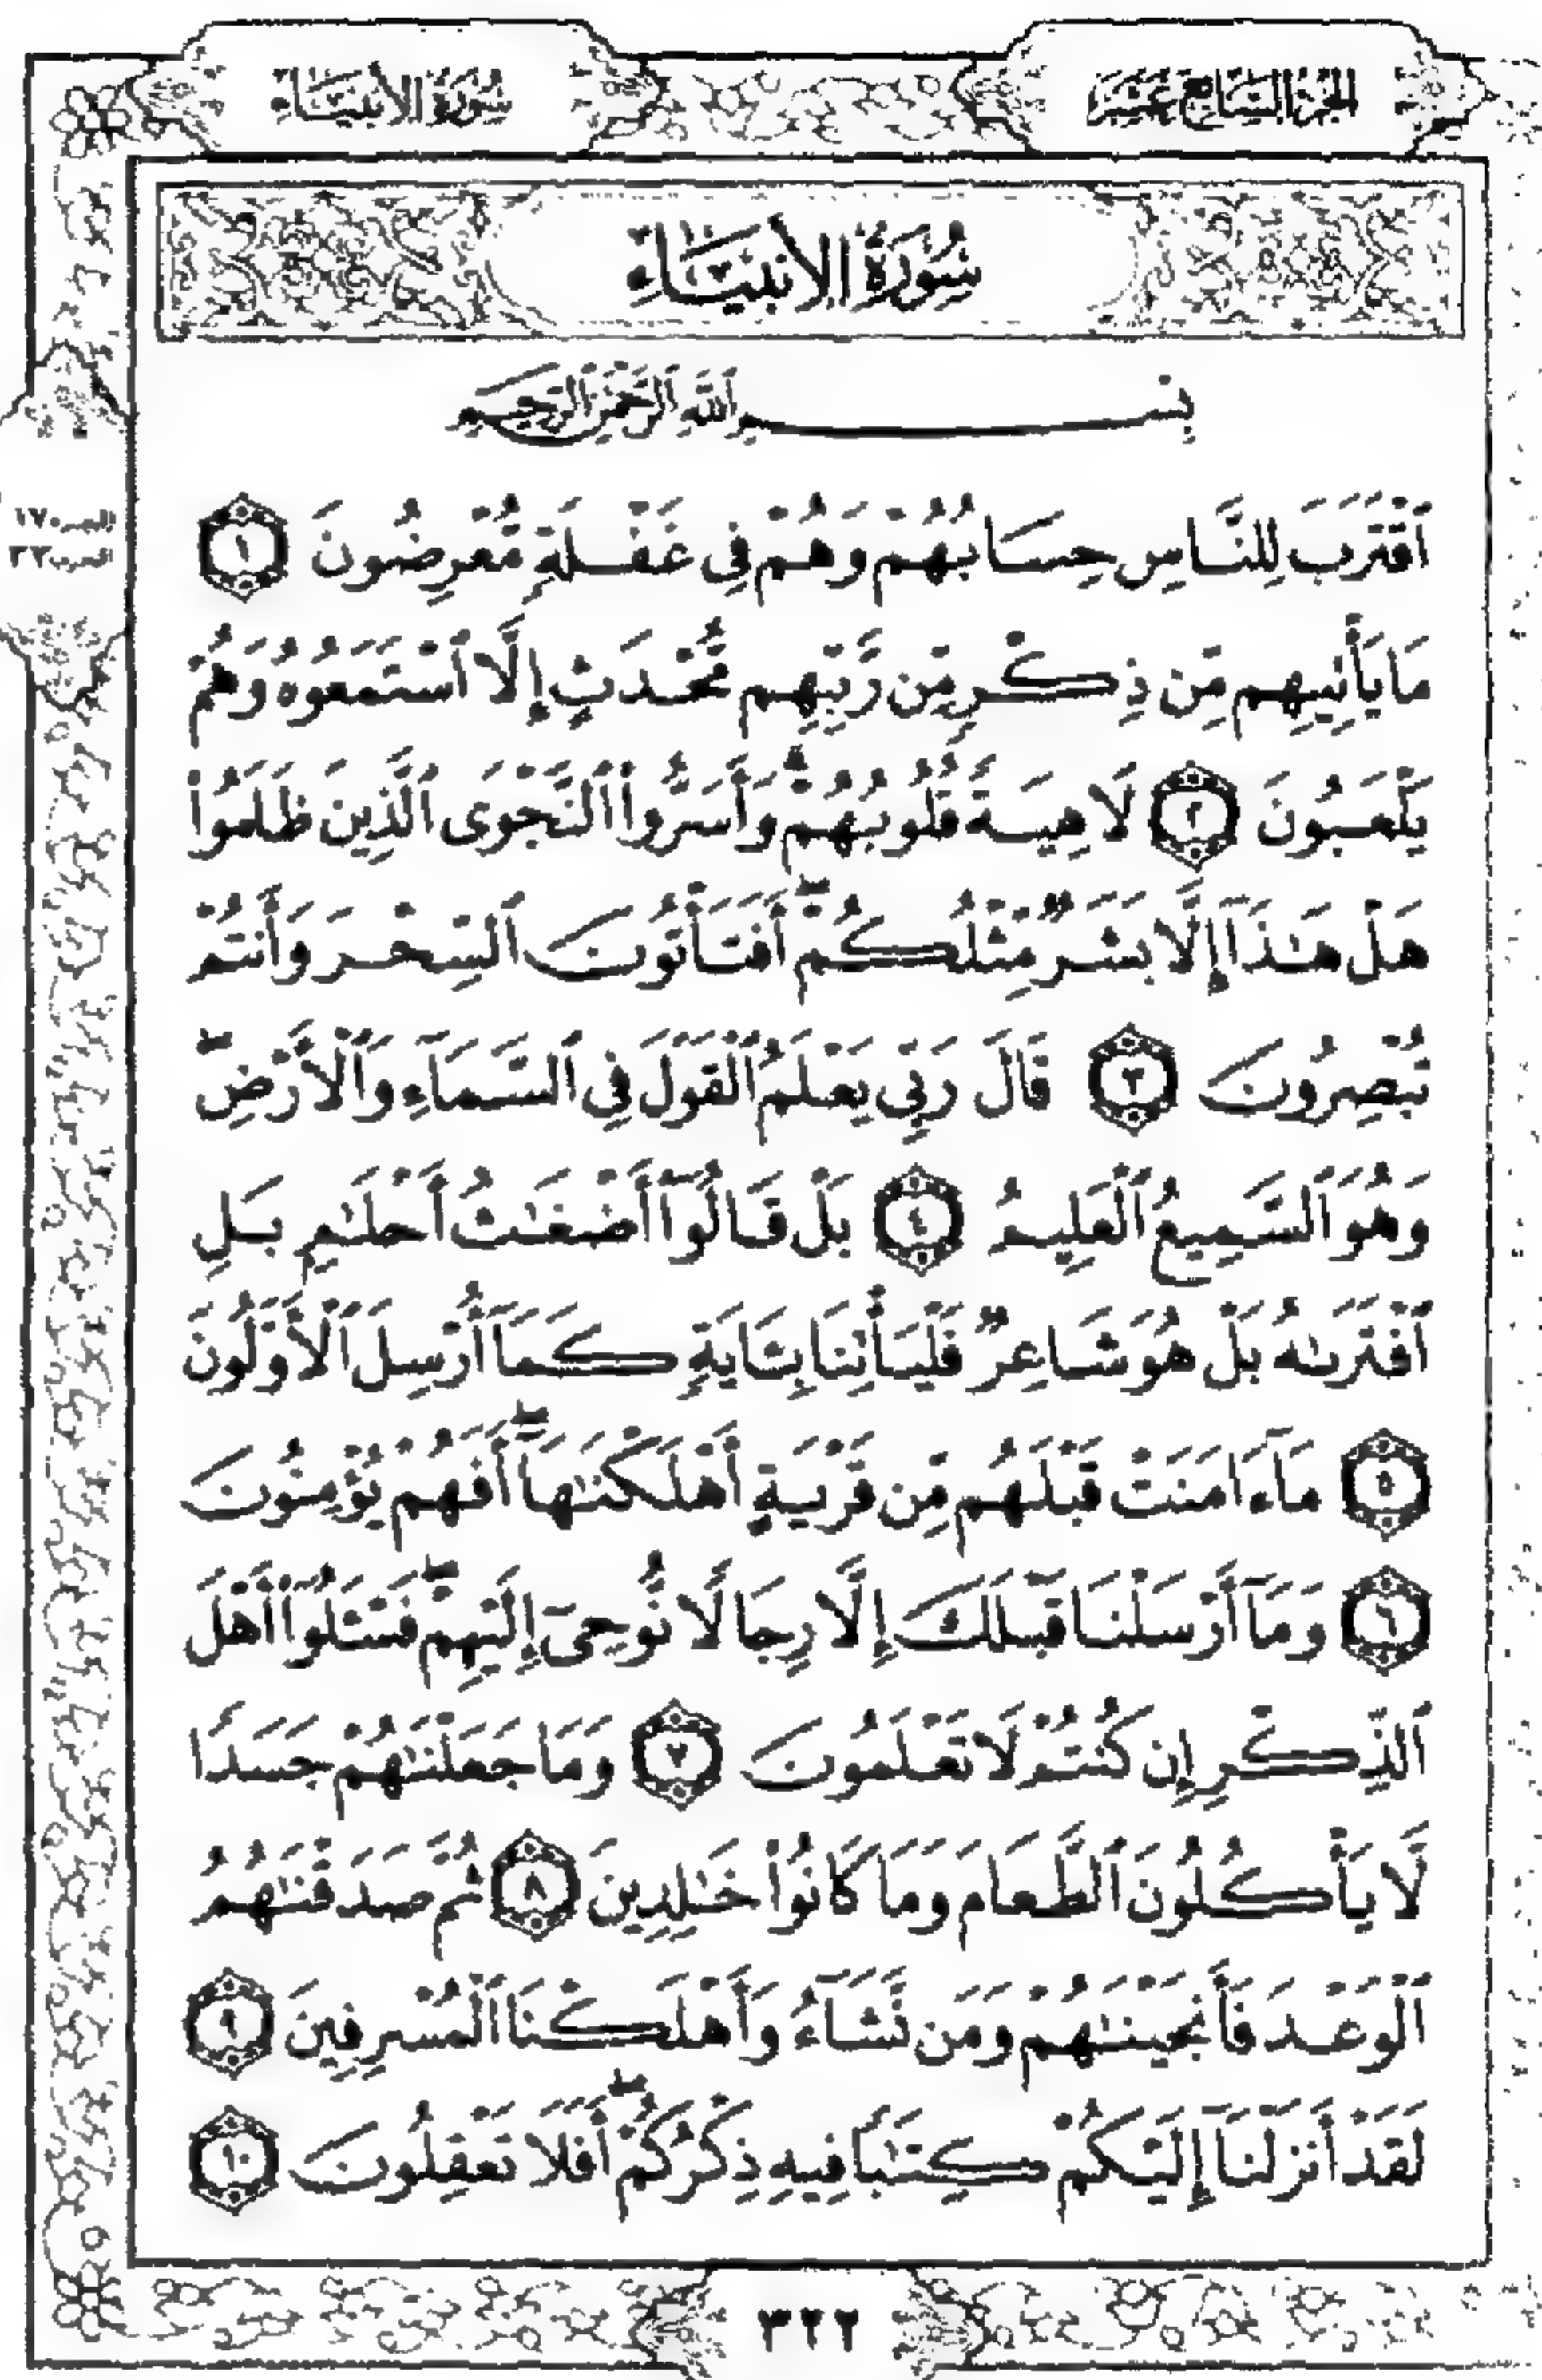 الجزء السابع عشر
سورة الأنبياء
سُورَةُ الأنبيَاء
بِسْمِ ٱللَّهِ ٱلرَّحْمَٰنِ ٱلرَّحِيمِ
ٱقْتَرَبَ لِلنَّاسِ حِسَابُهُمْ وَهُمْ فِى غَفْلَةٍ مُّعْرِضُونَ ١
مَا يَأْتِيهِم مِّن ذِكْرٍ مِّن رَّبِّهِم مُّحْدَثٍ إِلَّا ٱسْتَمَعُوهُ وَهُمْ
يَلْعَبُونَ ٢ لَاهِيَةً قُلُوبُهُمْ ۗ وَأَسَرُّوا۟ ٱلنَّجْوَى ٱلَّذِينَ ظَلَمُوا۟
هَلْ هَٰذَآ إِلَّا بَشَرٌ مِّثْلُكُمْ ۖ أَفَتَأْتُونَ ٱلسِّحْرَ وَأَنتُمْ
تُبْصِرُونَ ٣ قَالَ رَبِّى يَعْلَمُ ٱلْقَوْلَ فِى ٱلسَّمَآءِ وَٱلْأَرْضِ ۖ
وَهُوَ ٱلسَّمِيعُ ٱلْعَلِيمُ ٤ بَلْ قَالُوٓا۟ أَضْغَٰثُ أَحْلَٰمٍ بَلِ
ٱفْتَرَىٰهُ بَلْ هُوَ شَاعِرٌ فَلْيَأْتِنَا بِـَٔايَةٍ كَمَآ أُرْسِلَ ٱلْأَوَّلُونَ
٥ مَآ ءَامَنَتْ قَبْلَهُم مِّن قَرْيَةٍ أَهْلَكْنَٰهَآ ۖ أَفَهُمْ يُؤْمِنُونَ
٦ وَمَآ أَرْسَلْنَا قَبْلَكَ إِلَّا رِجَالًا نُّوحِىٓ إِلَيْهِمْ ۖ فَسْـَٔلُوٓا۟ أَهْلَ
ٱلذِّكْرِ إِن كُنتُمْ لَا تَعْلَمُونَ ٧ وَمَا جَعَلْنَٰهُمْ جَسَدًا
لَّا يَأْكُلُونَ ٱلطَّعَامَ وَمَا كَانُوا۟ خَٰلِدِينَ ٨ ثُمَّ صَدَقْنَٰهُمُ
ٱلْوَعْدَ فَأَنجَيْنَٰهُمْ وَمَن نَّشَآءُ وَأَهْلَكْنَا ٱلْمُسْرِفِينَ ٩
لَقَدْ أَنزَلْنَآ إِلَيْكُمْ كِتَٰبًا فِيهِ ذِكْرُكُمْ ۖ أَفَلَا تَعْقِلُونَ ١٠
٣٢٢